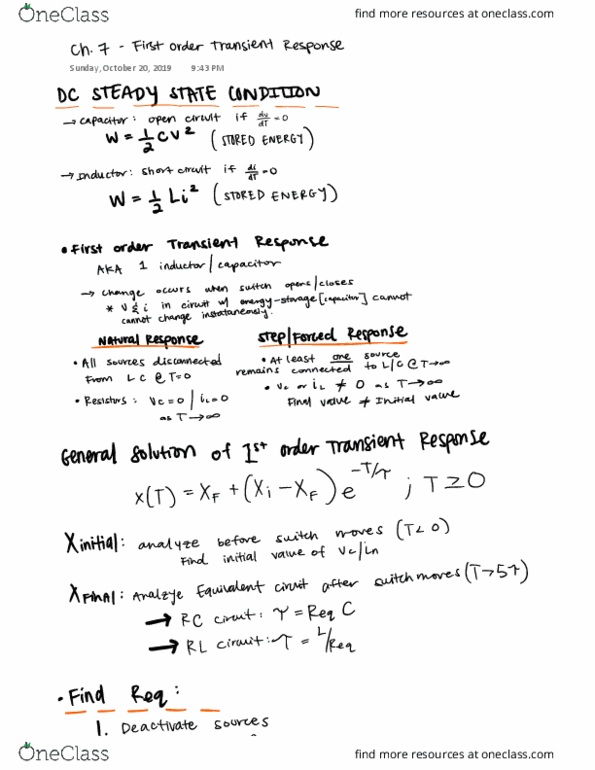 OneClass
find more resources at oneclass.com
Ch. 7 - First order Transient Response
Sunday, October 20, 2019 9:43 PM
DC STEADY STATE CONDITION
→ capacitor: open circuit if dv/dT = 0
W = 1/2 CV² (STORED ENERGY)
→ Inductor: short circuit if di/dT = 0
W = 1/2 Li² (STORED ENERGY)
• First order Transient Response
AKA 1 inductor/capacitor
→ change occurs when switch opens/closes
* V & i in circuit w/ energy-storage [capacitor] cannot
cannot change instataneously.
Natural Response
• All sources disconnected
From L C @ T=0
• Resistors: Vc=0 / iL=0
as T→∞
Step/Forced Response
• At least one source
remains connected to L/C @ T→∞
• Vc or iL ≠ 0 as T→∞
Final value ≠ Initial value
General solution of 1st order Transient Response
X(T) = XF + (Xi - XF) e^-T/τ ; T≥0
Xinitial: analyze before switch moves (T<0)
Find initial value of Vc/in
XFinal: Analzye Equivalent circuit after switch moves (T>5τ)
→ RC circuit: τ = Req C
→ RL circuit: τ = L/Req
• Find Req:
1. Deactivate sources
OneClass
find more resources at oneclass.com